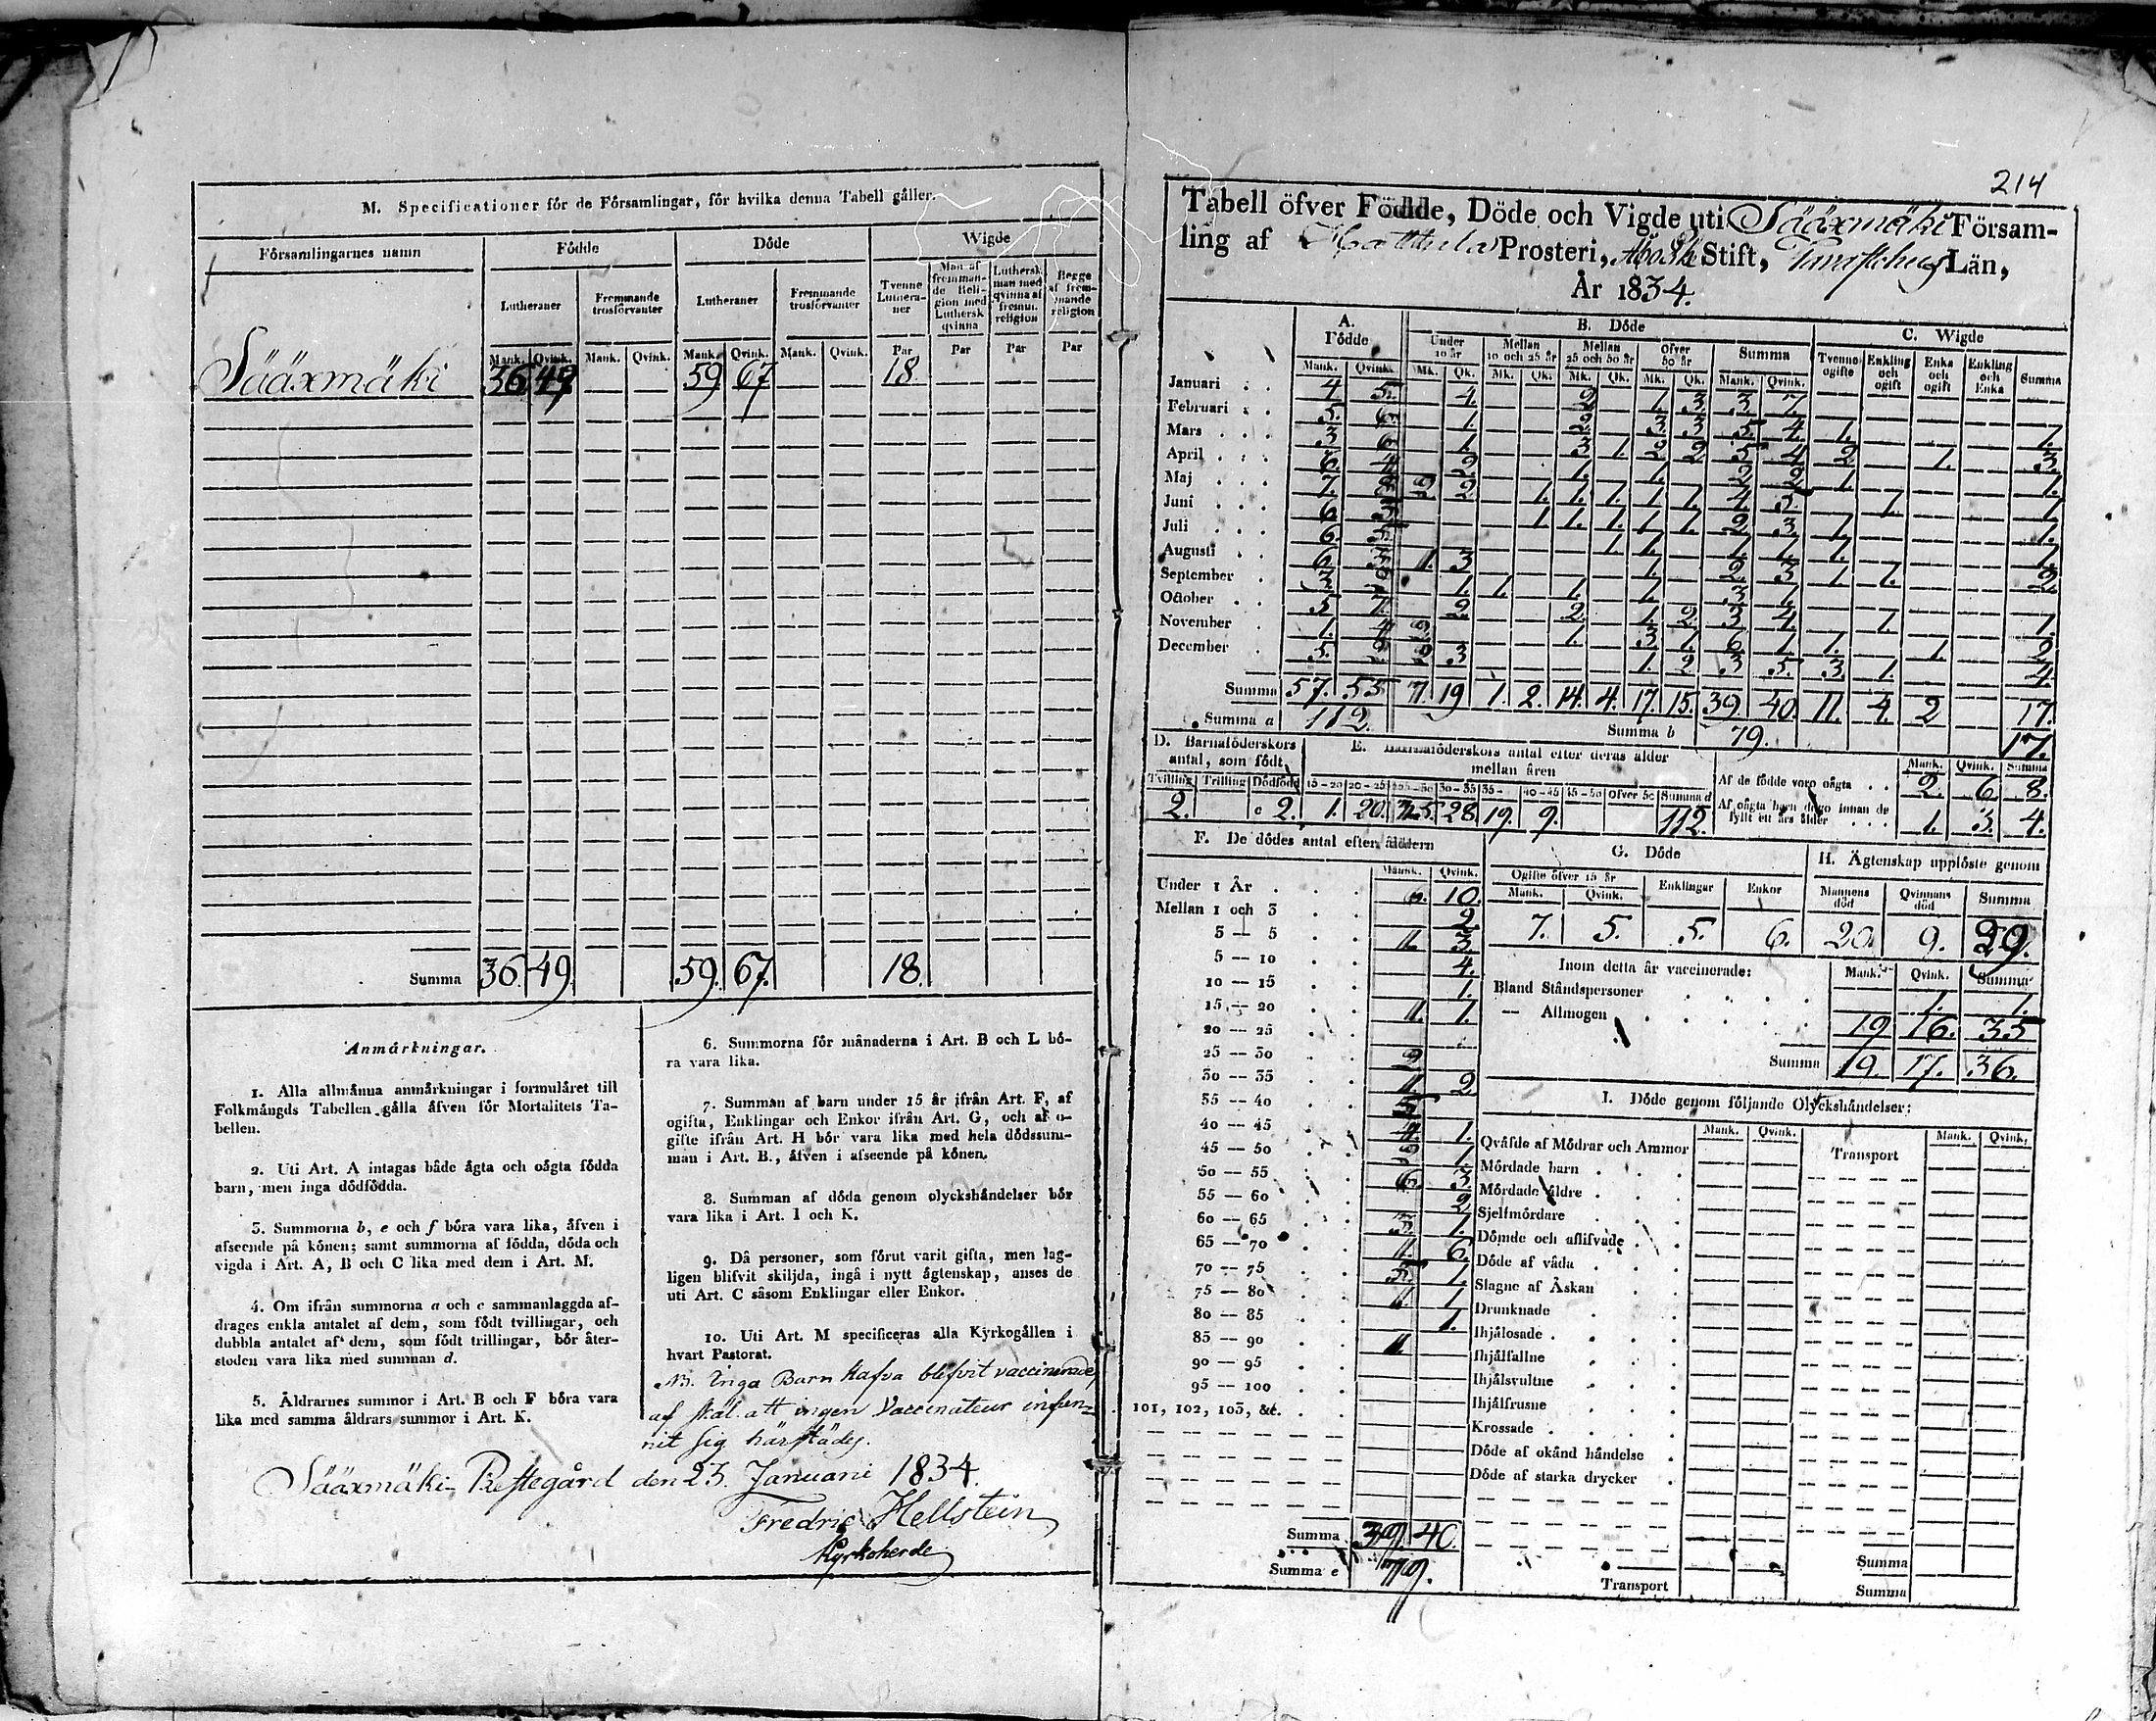 M. Specificationer för de Församlingar, för hvilka denna Tabell gäller.
Församlingarnes namn Födde Döde Wigde
Lutheraner Fremmande trosförvanter Lutheraner Fremmande trosförvanter Tvenne Lutheraner Man af fremmande Religion med Luthersk qvinna Luthersk man med qvinna af fremm. religion Begge af fremmande religion
Mank. Qvink. Mank. Qvink. Mank. Qvink. Mank. Qvink. Par Par Par Par
Sääxmäki 36 49 59 67 18
Summa 36 49. 59. 67. 18.
Anmärkningar.
1. Alla allmänna anmärkningar i formuläret till
Folkmängds Tabellen gälla äfven för Mortalitets Ta-
bellen.
2. Uti Art. A intagas både ägta och oägta födda
barn, men inga dödfödda.
3. Summorna b, e och f böra vara lika, äfven i
afseende på könen; samt summorna af födda, döda och
vigda i Art. A, B och C lika med dem i Art. M.
4. Om ifrån summorna a och c sammanlaggda af-
drages enkla antalet af dem, som födt tvillingar, och
dubbla antalet af dem, som födt trillingar, bör åter-
stoden vara lika med summan d.
5. Åldrarnes summor i Art. B och F böra vara
lika med samma åldrars summor i Art. K.
6. Summorna för månaderna i Art. B och L bö-
ra vara lika.
7. Summan af barn under 15 år ifrån Art. F, af
ogifta, Enklingar och Enkor ifrån Art. G, och af o-
gifte ifrån Art. H bör vara lika med hela dödssum-
man i Art. B., äfven i afseende på könen.
8. Summan af döda genom olyckshändelser bör
vara lika i Art. I och K.
9. Då personer, som förut varit gifta, men lag-
ligen blifvit skiljda, ingå i nytt ägtenskap, anses de
uti Art. C såsom Enklingar eller Enkor.
10. Uti Art. M specificeras alla Kyrkogällen i
hvart Pastorat.
NB. Inga Barn hafva blefvit vaccinerade,
af skäl att ingen Vaccinateur infun-
nit sig härstädes.
Sääxmäki Prestegård den 23. Januarii 1834.
Fredric Hellstein
Kyrkoherde
214
Tabell öfver Födde, Döde och Vigde uti Sääxmäki Försam-
ling af Hattula Prosteri, Åbo Stift, Tavastehus Län,
År 1834.
A. Födde B. Döde C. Wigde
Under 10 år Mellan 10 och 25 år Mellan 25 och 50 år Öfver 50 år Summa Tvenne ogifte Enkling och ogift Enka och ogift Enkling och Enka Summa
Mank. Qvink. Mk. Qk. Mk. Qk. Mk. Qk. Mk. Qk. Mank. Qvink.
Januari 4 5. 4. 2 1. 3 3 7.
Februari 5. 6. 1. 2. 3 3 5. 4. 1. 1.
Mars 3 6. 1. 3 1. 2 2 5 4 2 1. 3.
April 6 4 2 1. 1. 2 2 1. 1.
Maj 7. 2 2 1. 1. 1. 1. 1. 4 5. 1. 1.
Juni 6 1 1. 1. 1 1. 2 3 1. 1.
Juli 6. 5. 1. 1. 1. 1. 1. 1.
Augusti 6 3 1. 3 1. 2 3 1. 1. 2
September 3 1. 1. 1. 1. 3 1.
October 5 7. 2. 2. 1. 2 3 4. 1. 1.
November 1. 4 2. 1. 3 1. 6 1. 1. 1. 2
December 5. 2 3 1. 2 3 5. 3 1. 4.
Summa 57. 55 7. 19 1. 2. 14. 4. 17. 15. 39 40. 11. 4. 2 17.
Summa a 112. Summa b 79. 17.
D. Barnaföderskors antal, som födt
Tvilling Trilling Dödfödd
2. 2.
E. Barnaföderskors antal efter deras ålder
mellan åren
15-20 20-25 25-30 30-35 35- 40-45 45-50 Öfver 50 Summa d
1. 20. 35. 28 19. 9. 112.
Mank. Qvink. Summa
Af de födde voro oägta 2. 6. 8.
Af oägta barn dogo innan de fyllt ett års ålder 1. 3. 4.
F. De dödes antal efter åldern
Mank. Qvink.
Under 1 År 6. 10.
Mellan 1 och 3 2
3 — 5 1. 3.
5 — 10 4.
10 — 15 1.
15 — 20 1. 1.
20 — 25
25 — 30 2
30 — 35 1. 2
35 — 40 5
40 — 45 4. 1.
45 — 50 2 1.
50 — 55 6. 3.
55 — 60 2
60 — 65 3. 1.
65 — 70 1. 6.
70 — 75 5. 1.
75 — 80 1. 1
80 — 85 1.
85 — 90 1
90 — 95
95 — 100
101, 102, 103, &c.
Summa 39. 40.
Summa e 79.
G. Döde
Ogifte öfver 15 år Enklingar Enkor
Mank. Qvink.
7. 5. 5. 6.
H. Ägtenskap upplöste genom
Mannens död Qvinnans död Summa
20. 9. 29.
Inom detta år vaccinerade: Mank. Qvink. Summa
Bland Ståndspersoner 1. 1.
— Allmogen 19 16. 35
Summa 19. 17. 36.
I. Döde genom följande Olyckshändelser:
Mank. Qvink. Mank. Qvink.
Qväfde af Mödrar och Ammor Transport
Mördade barn
Mördade äldre
Sjelfmördare
Dömde och aflifvade
Döde af våda
Slagne af Åskan
Drunknade
Ihjälosade
Ihjälfallne
Ihjälsvultne
Ihjälfrusne
Krossade
Döde af okänd händelse
Döde af starka drycker
Transport
Summa
Summa